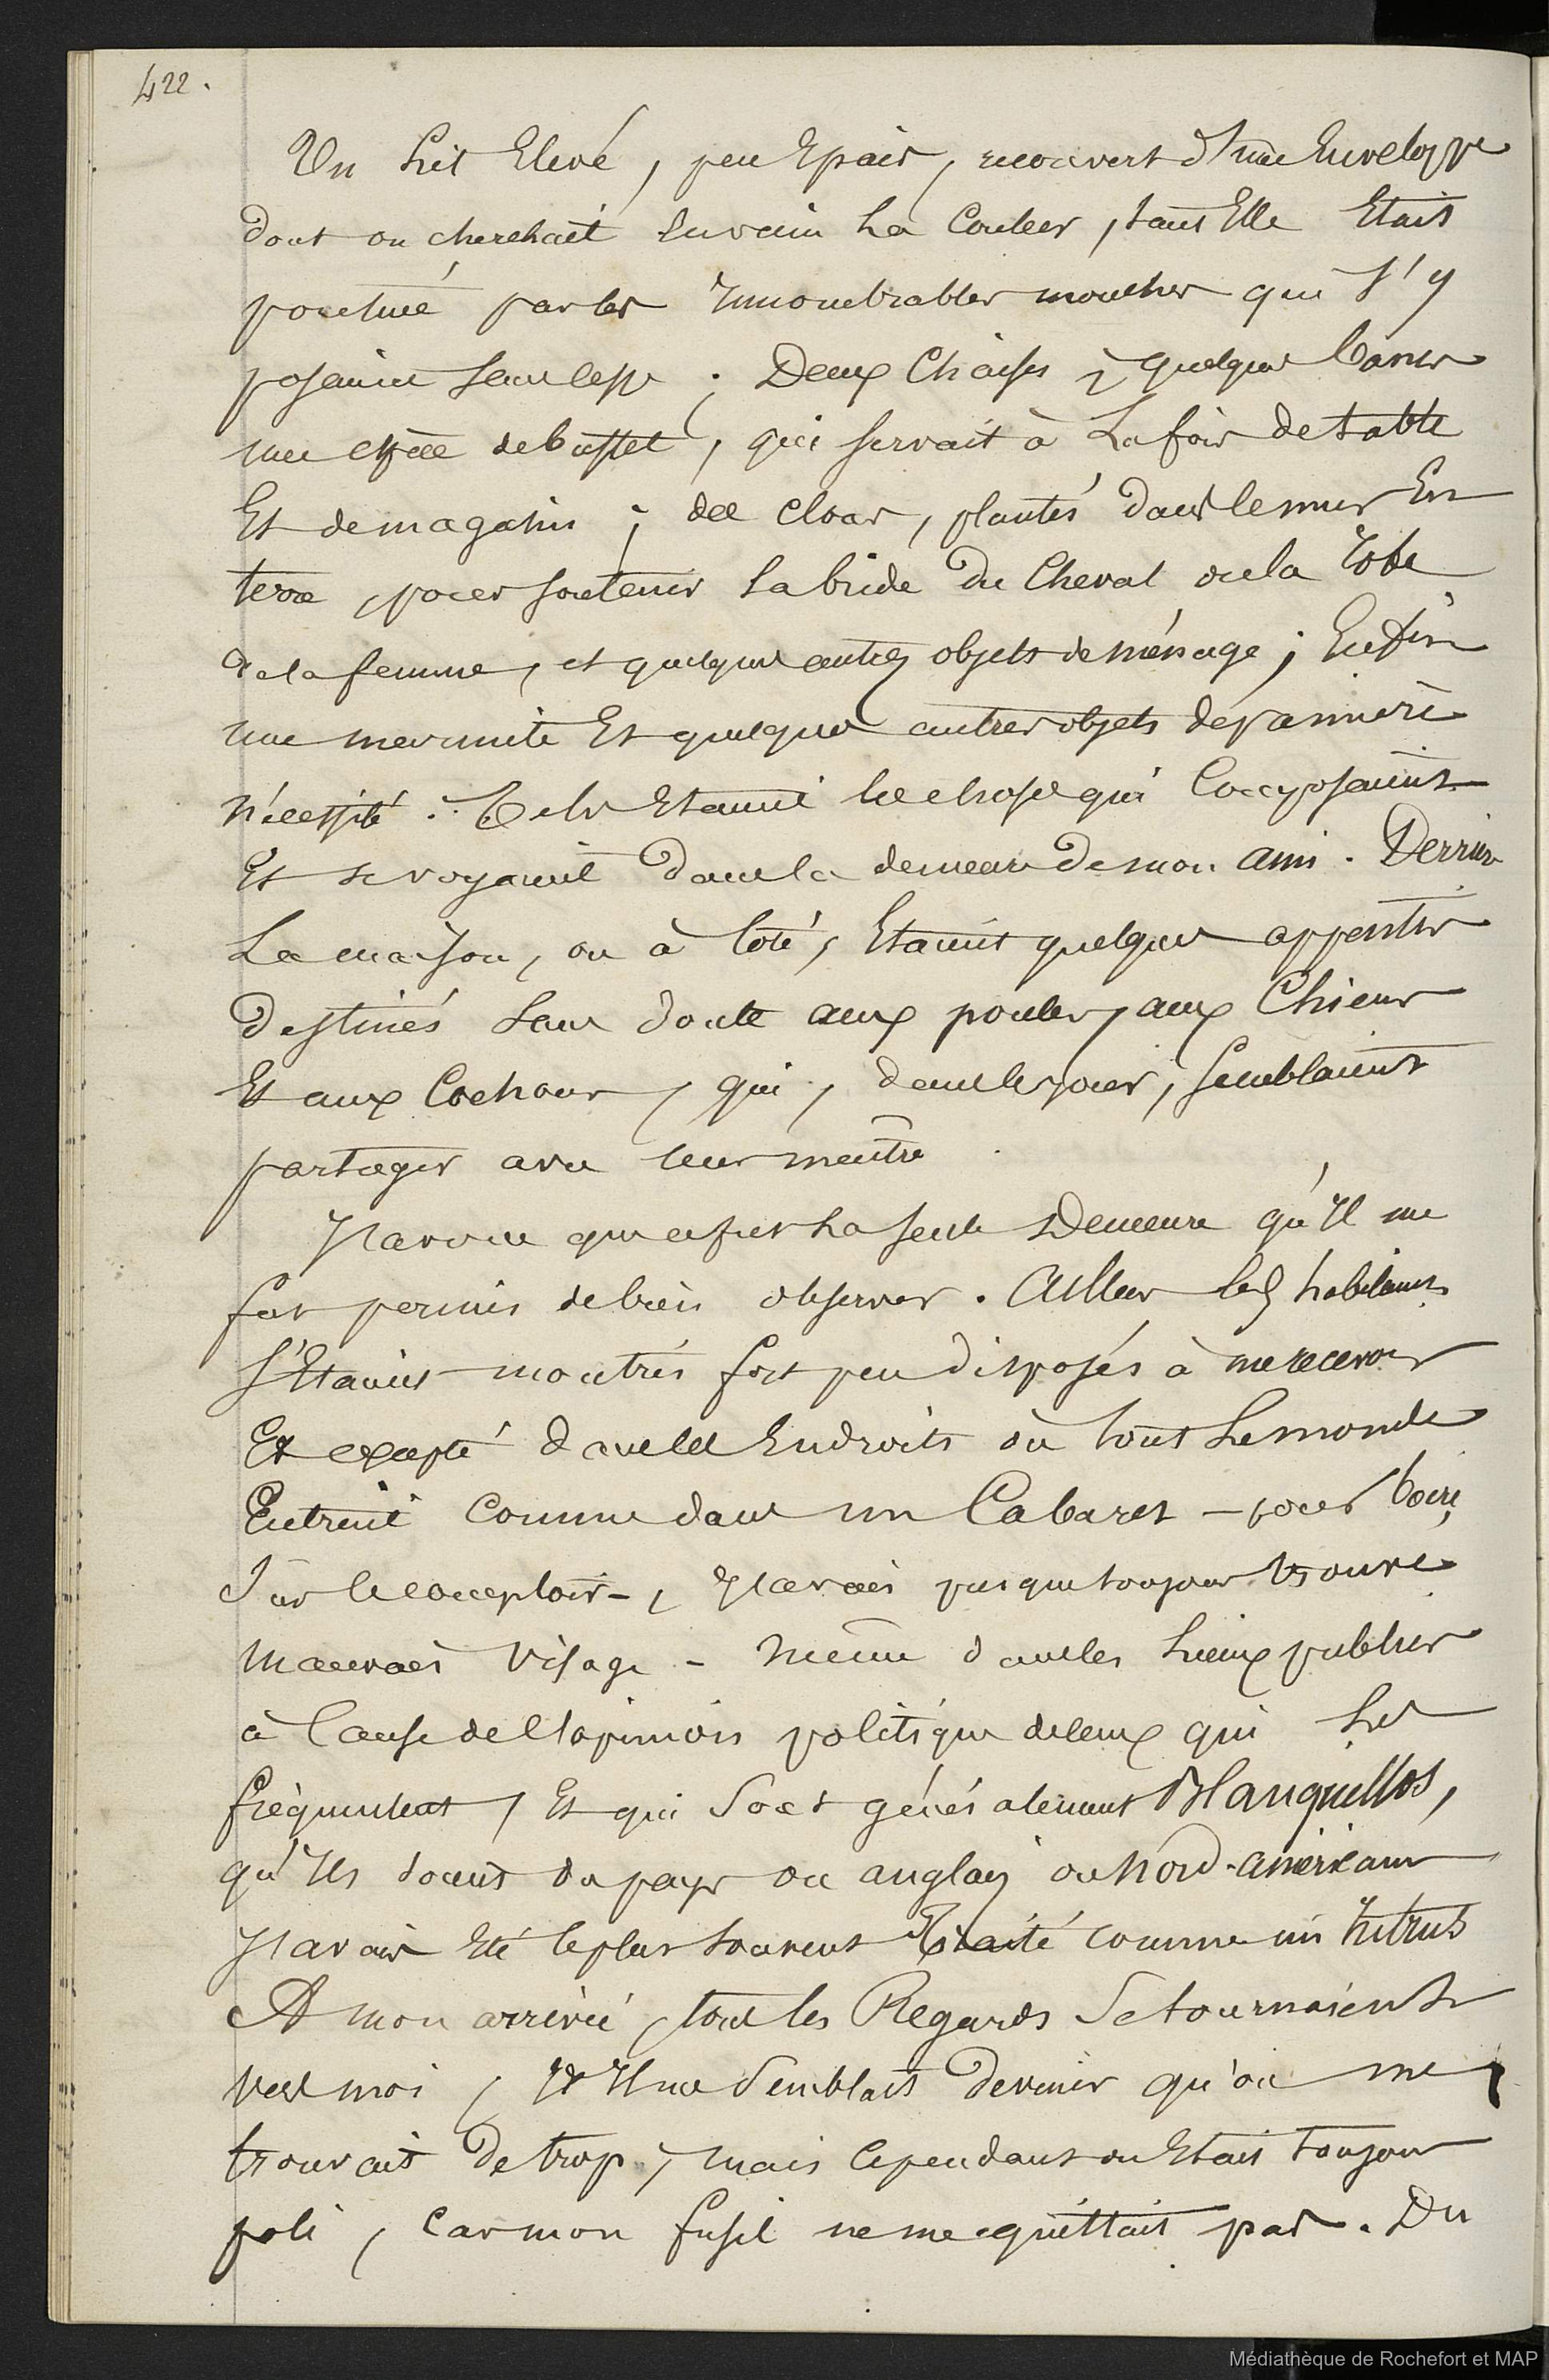 422.
Un Lit Elevé, peu Epais, recouvert d'une Enveloppe
dont on cherchait Envain La Couleur, tant Elle Etait
ponctué par les Innombrables mouches qui s'y
posaient sans cesse ; Deux Chaises, quelques bancs
une espèce de buffet, qui servait à La fois de table
Et de magasin ; des clous, plantés dans le mur En
terre, pour soutenir La bride du Cheval ou la robe
de la femme, et quelques autres objets de ménage ; Enfin
une marmite Et quelques autres objets de première
nécessité. Tels Etaient les choses qui Composaient
Et se voyaient dans la demeure de mon ami. Derrière
La maison, ou à Coté, Etaient quelques appentis
destinés sans doute aux poules, aux Chiens
Et aux Cochons, qui, dans le jour, semblaient
partager avec leur maître
J'avoue que ce fut La seule Demeure qu'Il me
fut permis de bien observer. Ailleurs les habitants
s'Etaient montrés fort peu disposés à me recevoir
Et excepté dans les Endroits où tout Le monde
Entrait Comme dans un Cabaret – pour boire
sur le comptoir –, J'avais presque toujours trouvé
mauvais visage – même dans les Lieux publics
à Cause de l'opinion politique de ceux qui Les
fréquentent, Et qui sont généralement Blanquillos,
qu'Ils soient du pays ou anglais ou Nord-américains
J'avais Eté le plus souvent Traité comme un Intrus
A mon arrivée, tous les Regards se tournaient
vers moi, Et Il me semblait deviner qu'on me
trouvait de trop, mais Cependant on Etait toujours
poli, Car mon fusil ne me quittait pas. Du
Médiathèque de Rochefort et MAP